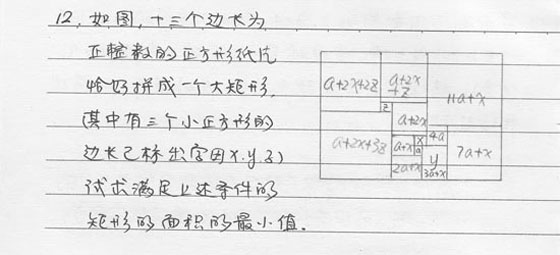 12, 如图, 十三个边长为
正整数的正方形纸片
恰好拼成一个大矩形,
(其中有三个小正方形的
边长已标出字母x.y.z)
试求满足上述条件的
矩形的面积的最小值.
a+2x+2z
a+2x+z
11a+x
z
a+2x
a+2x+3z
a+x
x
a
4a
2a+x
y
3a+x
7a+x